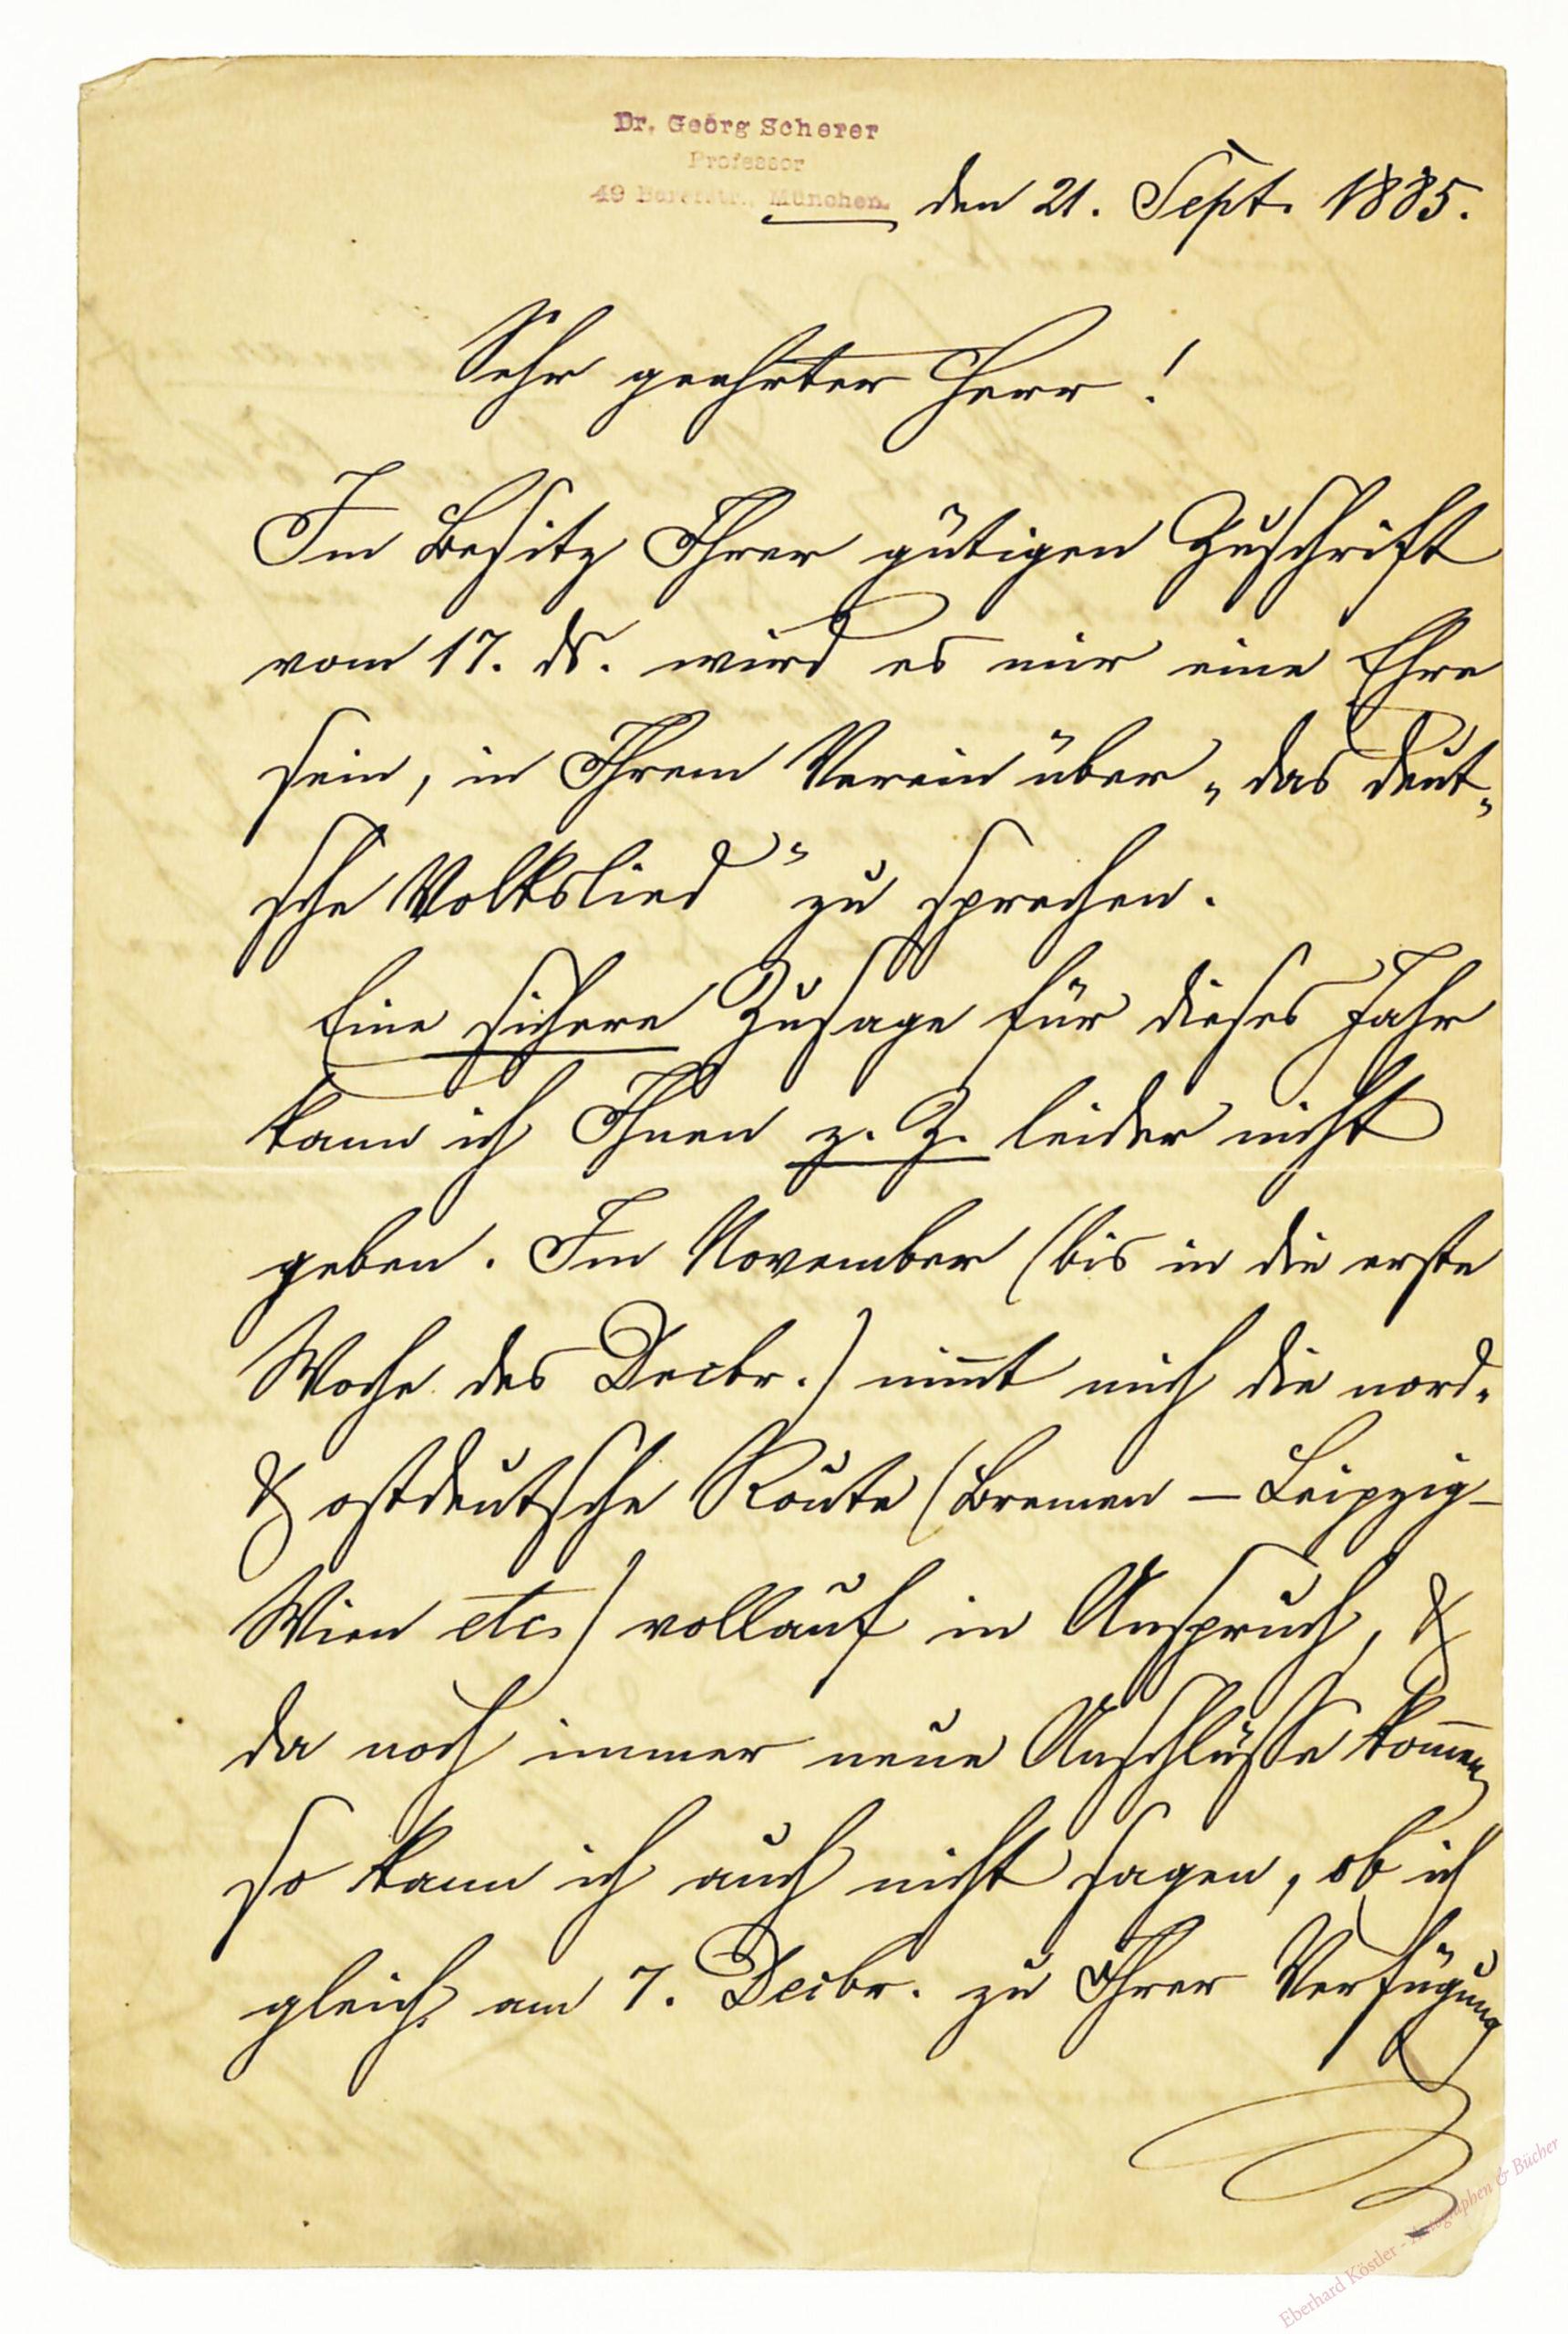 Dr. Georg Scherer
Professor
49 München. den 21. Sept. 1885.
Sehr geehrter Herr!
Im Besitz Ihrer gütigen Zuschrift
vom 17. ds. wird es mir eine Ehre
sein, in Ihrem Verein über „das deut-
sche Volkslied“ zu sprechen.
Eine sichere Zusage für dieses Jahr
kann ich Ihnen z. Z. leider nicht
geben. Im November (bis in die erste
Woche des Decbr.) nim̅t mich die nord-
& ostdeutsche Route (Bremen – Leipzig –
Wien etc.) vollauf in Anspruch, &
da noch immer neue Anschlüsse kom̅en,
so kann ich auch nicht sagen, ob ich
gleich am 7. Decbr. zu Ihrer Verfügung
Eberhard Köstler - Autographen & Bücher